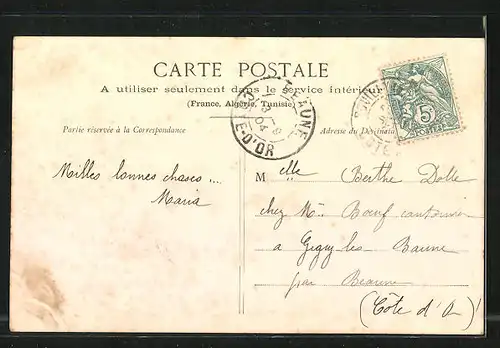 CARTE POSTALE
A utiliser seulement dans le service intérieur
(France, Algérie, Tunisie)
Partie réservée à la Correspondance
Adresse du Destinata
BEAUNE
04
CÔTE-D'OR
5
POSTES
Milles bonnes choses ...
Maria
Melle Berthe Dolle
chez Mr Boeuf cantonnier
a Gigny les Baune
par Beaune
(Côte d'Or)